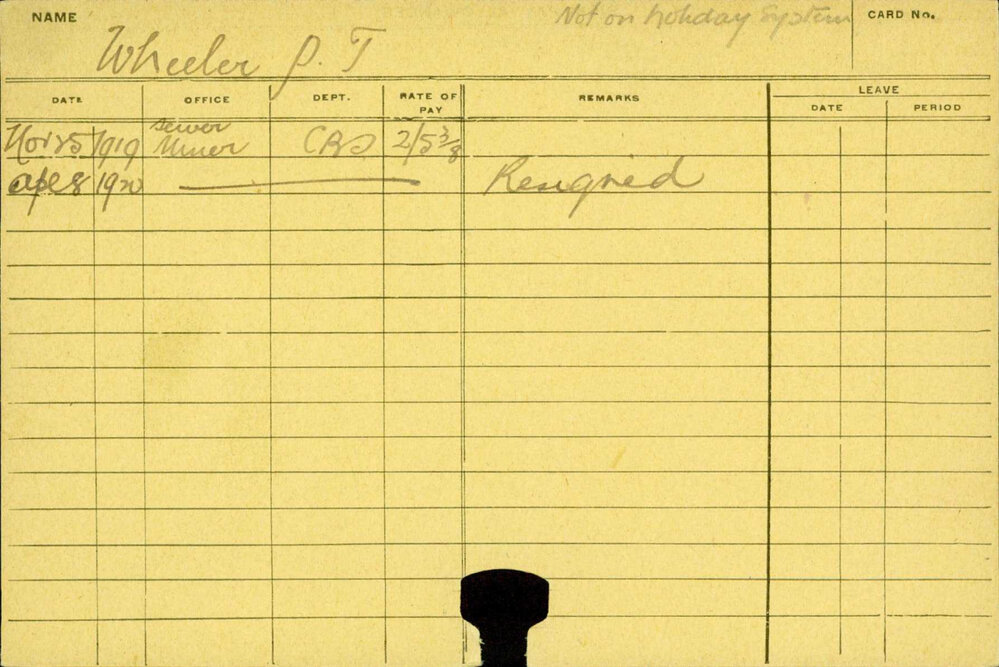 NAME Not on holiday System CARD No.
Wheeler P. T
DATE OFFICE DEPT. RATE OF PAY REMARKS LEAVE
DATE PERIOD
Nov 25 1919 Sewer Miner CBS 2/5 3/8
Apl 8 1920 Resigned